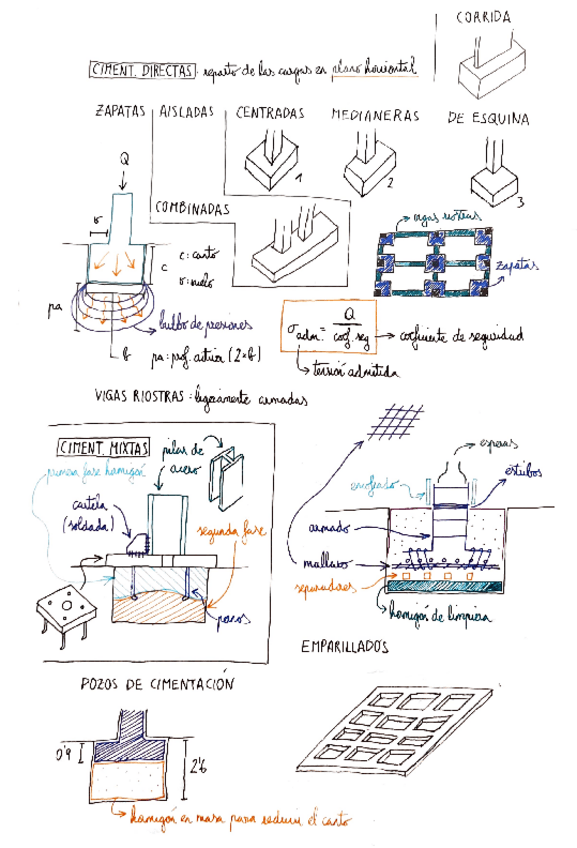 CORRIDA
CIMENT. DIRECTAS: reparto de las cargas en plano horizontal
ZAPATAS
AISLADAS
CENTRADAS
MEDIANERAS
DE ESQUINA
1
2
3
Q
COMBINADAS
v
c
c: canto
v: vuelo
pa
bulbo de presiones
b
pa: prof. activa (2×b)
vigas riostras
zapatas
σadm. = Q / coef. seg
coeficiente de seguridad
tensión admitida
VIGAS RIOSTRAS: ligeramente armadas
CIMENT. MIXTAS
pilar de acero
primera fase hormigón
cartela (soldada)
segunda fase
esperas
encofrado
estribos
armado
mallazo
separadores
hormigón de limpieza
EMPARILLADOS
POZOS DE CIMENTACIÓN
0'9
2'6
hormigón en masa para reducir el canto